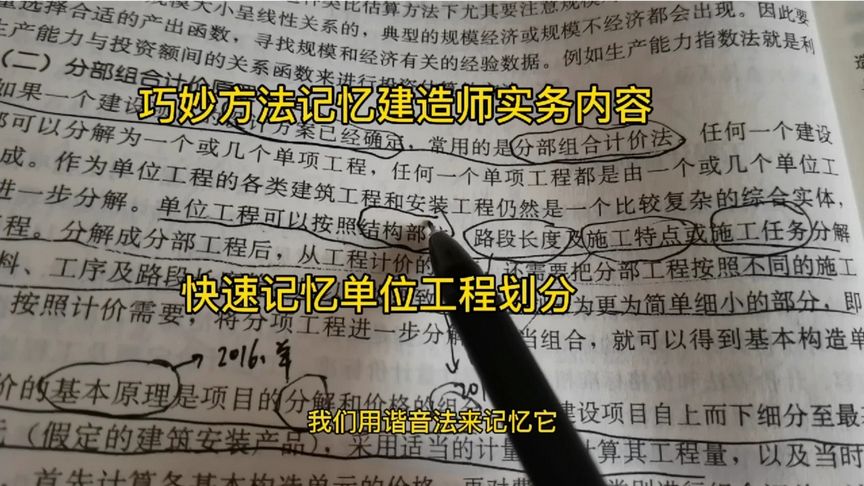 量选择合适的产出函数，寻找规模和经济有关的经验数据。例如生产能力指数法就是利
大小呈线性关系的，典型的规模经济或规模不经济都会出现。因此要
生产能力与投资额间的关系函数来进行投资估算
（二）分部组合计价原
巧妙方法记忆建造师实务内容
如果一个建设 设计方案已经确定，常用的是分部组合计价法 任何一个建设
可以分解为一个或几个单项工程，任何一个单项工程都是由一个或几个单位工
成。作为单位工程的各类建筑工程和安装工程仍然是一个比较复杂的综合实体，
进一步分解。单位工程可以按照结构部 路段长度及施工特点或施工任务分解
程。分解成分部工程后，从工程计价的 还需要把分部工程按照不同的施工
料、工序及路段 为更为简单细小的部分，即
快速记忆单位工程划分
按照计价需要，将分项工程进一步分解 当组合，就可以得到基本构造单
2016、单
价的基本原理是项目的分解和价格的组 建设项目自上而下细分至最
我们用谐音法来记忆它
元（假定的建筑安装产品），采用适当的计量 计算其工程量，以及当时
首先计算各基本构造单元的价格